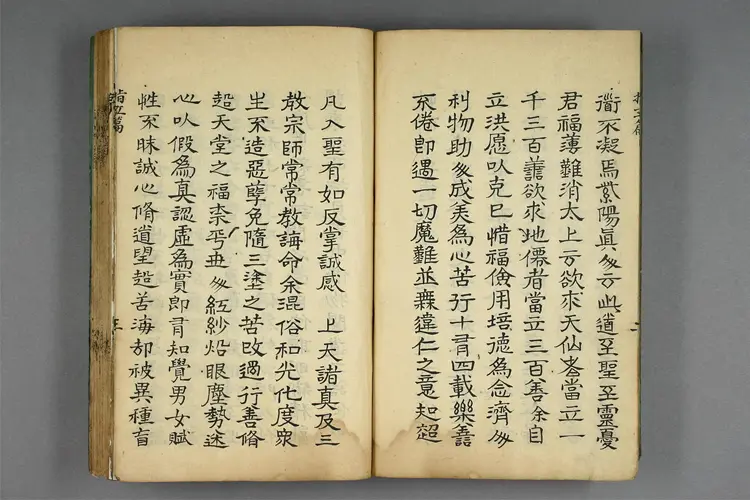 衜不凝焉紫陽眞人云此道至聖至靈憂
君福薄難消太上云欲求天仙者當立一
千三百善欲求地僊者當立三百善余自
立洪愿以克己惜福儉用培德為念濟人
利物助人成美為心苦行十有四載樂善
不倦即遇一切魔難並無違仁之意知超
凡入聖有如反掌誠感　上天諸真及三
教宗師常常教誨命余混俗和光化度衆
生不造惡孽免隨三塗之苦改過行善脩
超天堂之福柰乎世人紅紗炤眼塵勢迷
心以假為真認虛為實即有知覺男女賦
性不昧誠心脩道望超苦海却被異種盲
指玄篇
三